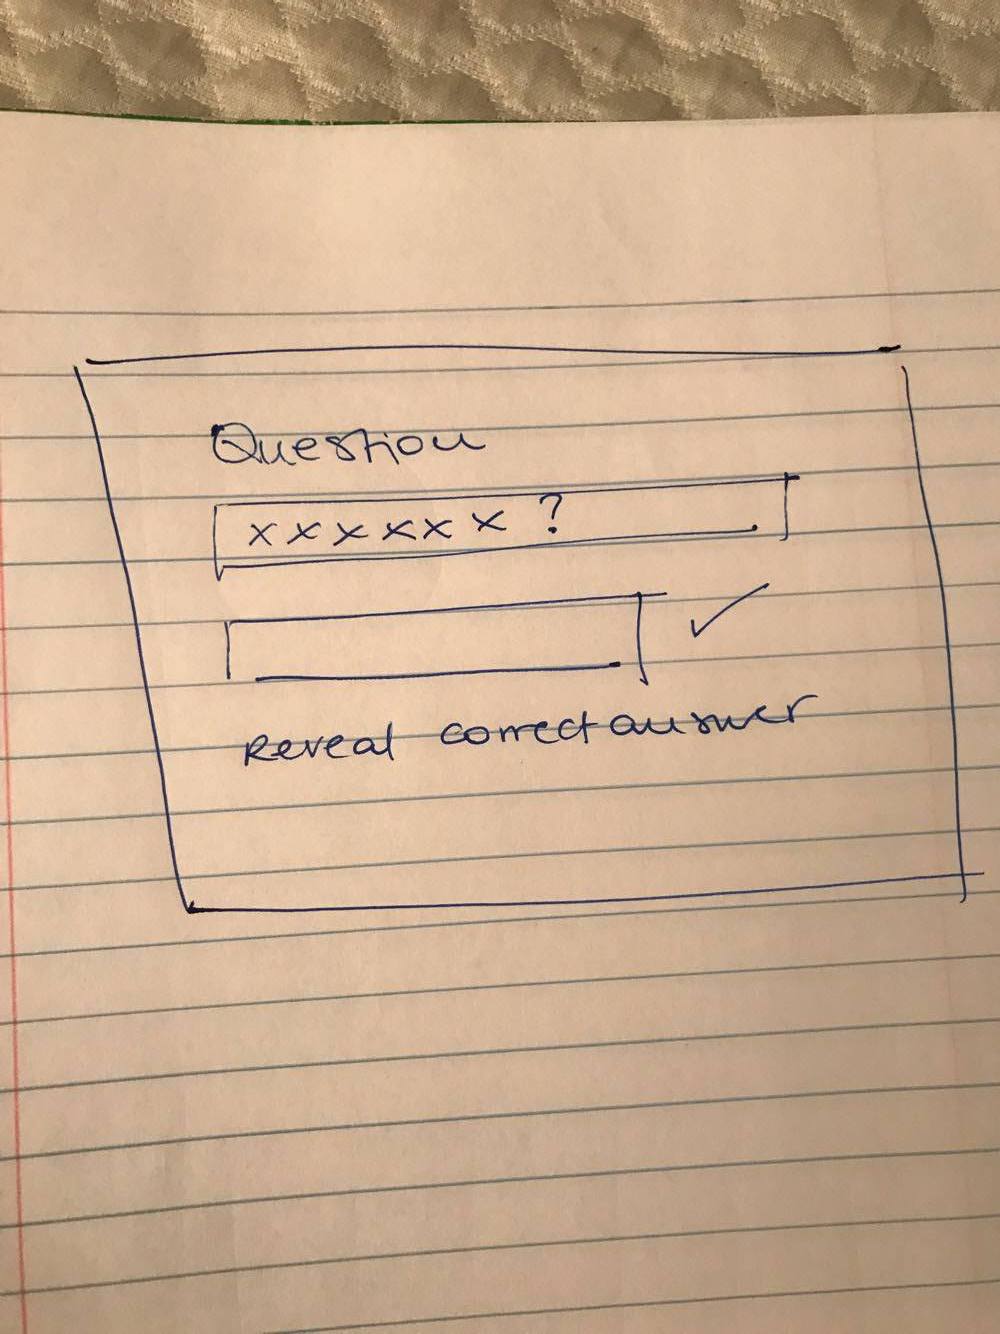 Question
xxxxxx ?
Reveal correct answer